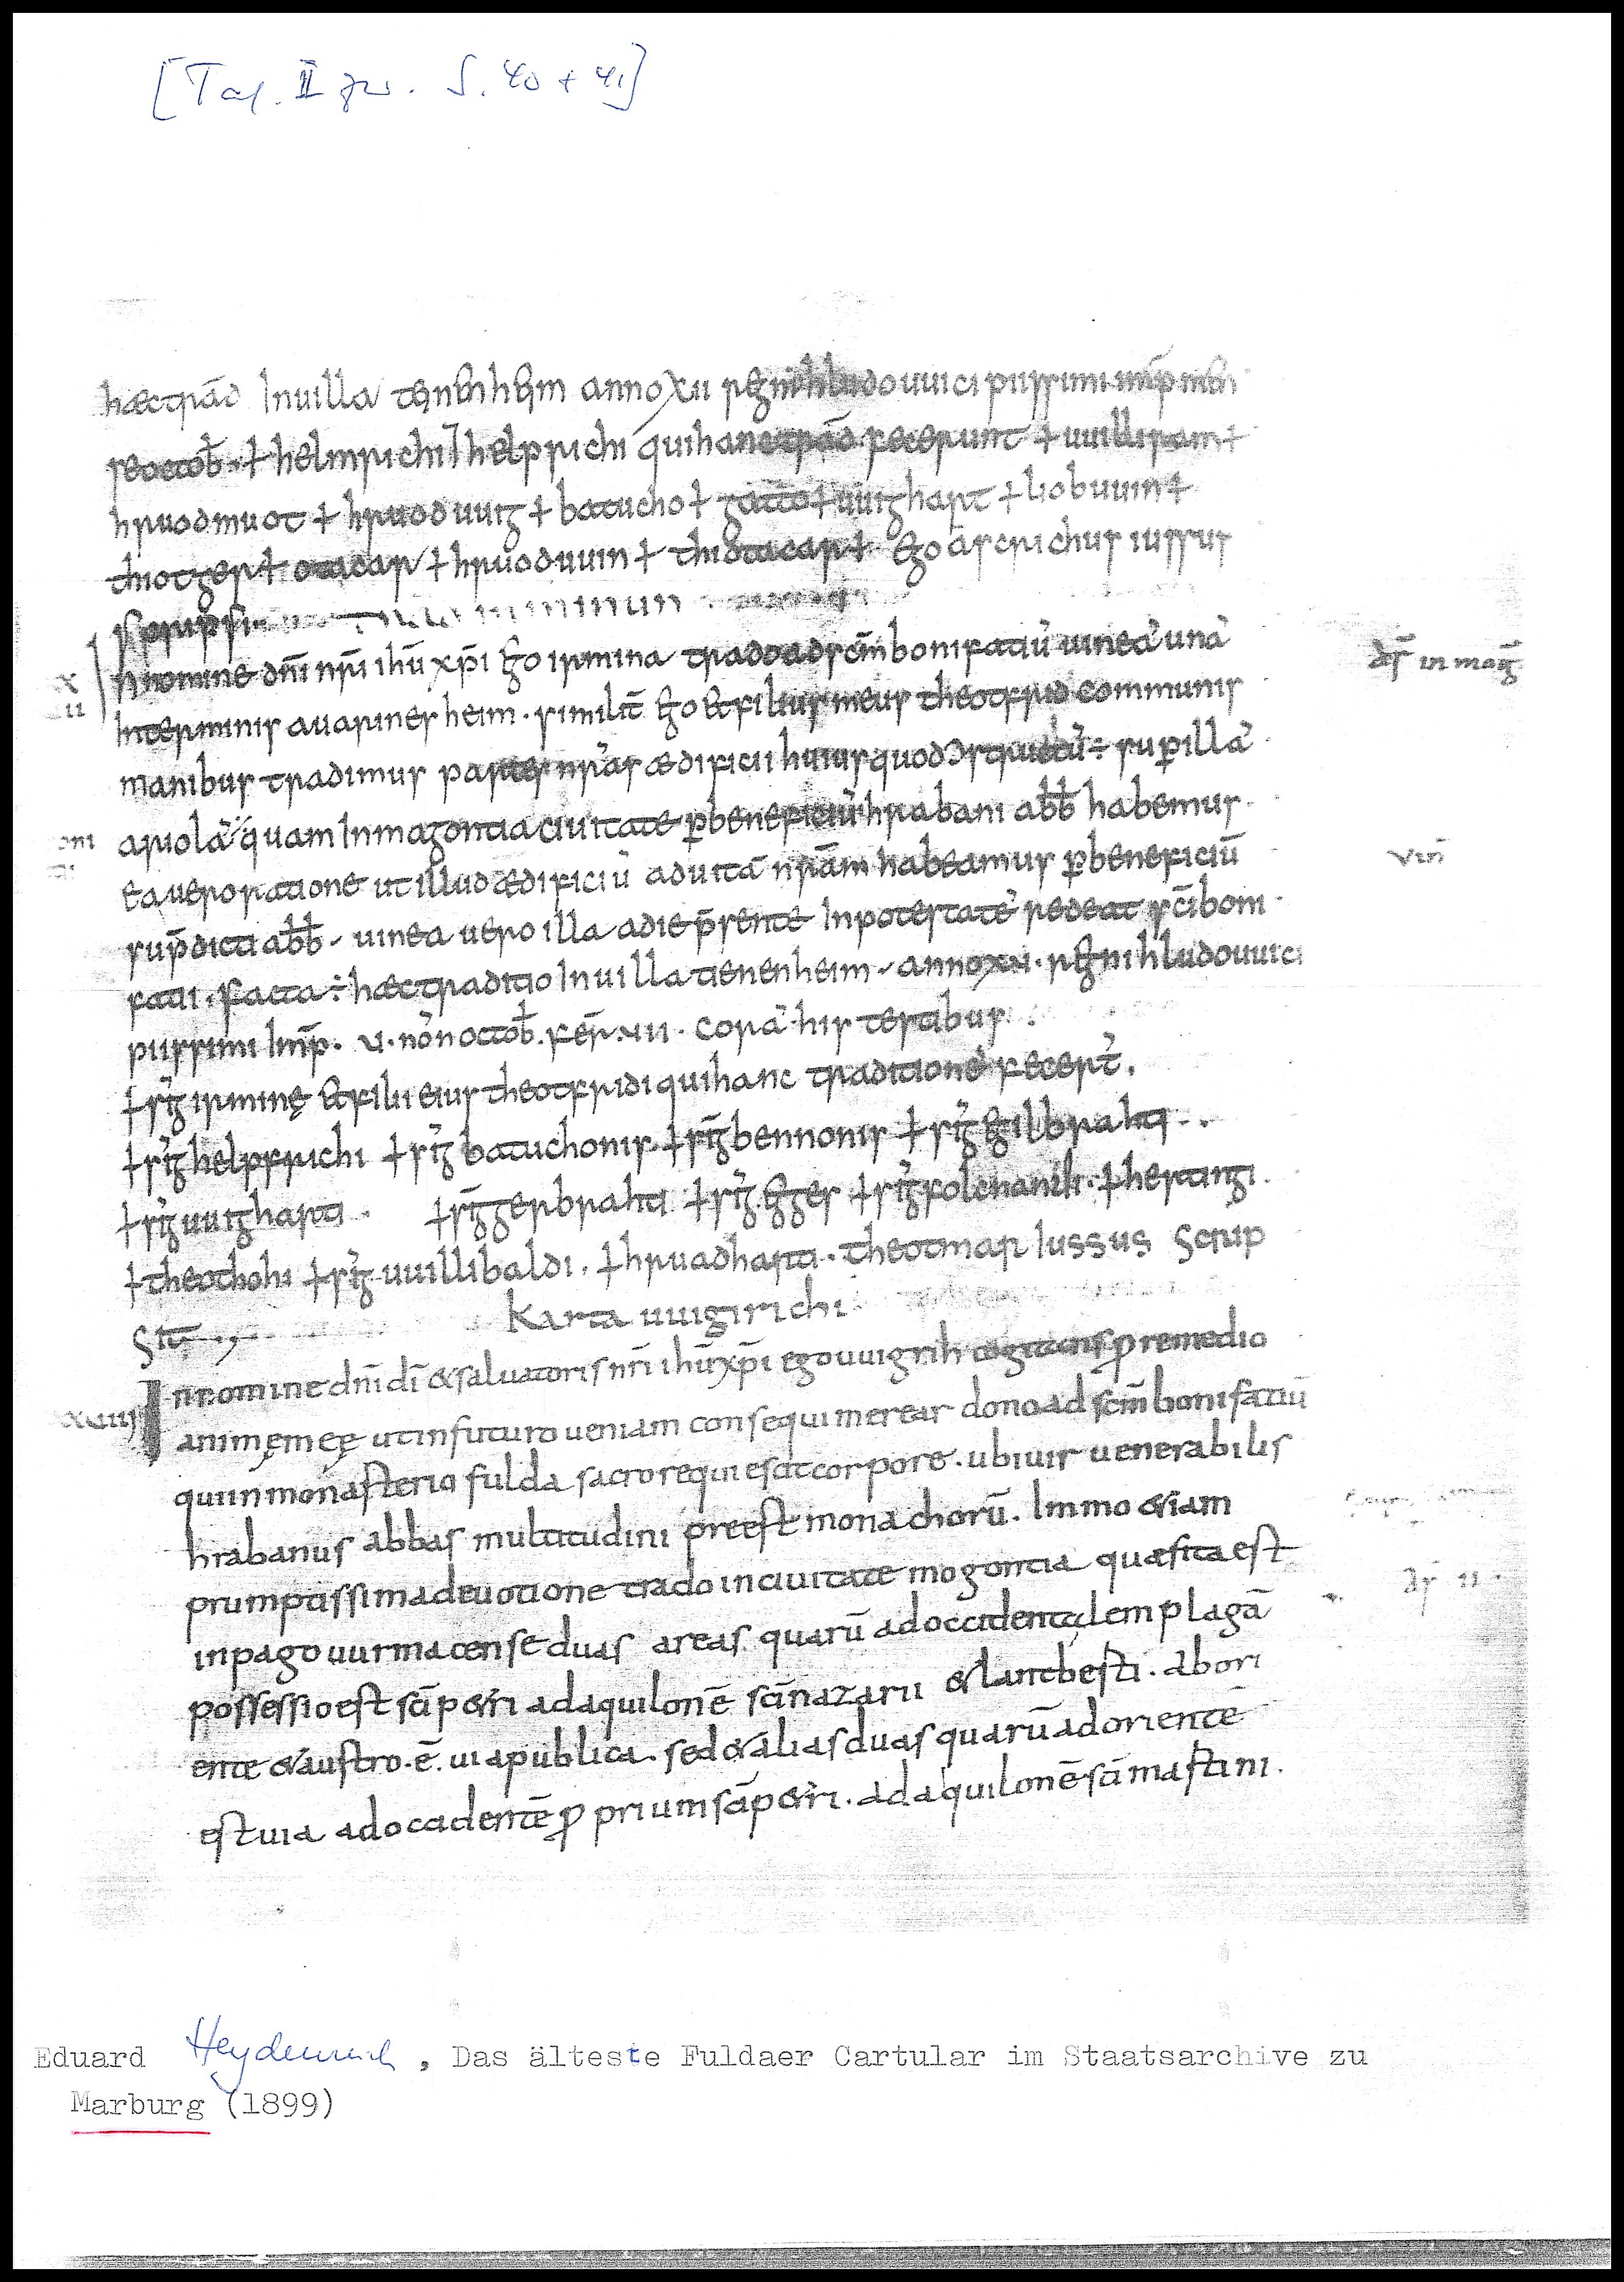 [Taf. II zw. S. 40 + 41]
haec trad̄ In uilla tenenheim anno xii regni hludouuici piissimi imp̄ men
se octob̄. + helmrichi helprichi qui hanc trad̄ fecerunt + uuilliram +
hruodmuot + hruoduuig + batucho + gatto + uuighart + liobuuin +
thiotger + otacar + hruoduuin + thiotacar + Ego ascrichus iussus
scripsi.
In nomine dn̄i nr̄i ihū xp̄i Ego irmina trado ad sc̄m bonifatiū uineā unā
dr̄ in maḡ
x
ii
In terminis auarinesheim. similit̄ Ego et filius meus theotfrid communis
manibus tradimus partes nr̄as ædificii huius quod ɔstructū ÷ sup̄ illā
ariolā quam In magontia ciuitate p̄ beneficiū hrabani abb̄ habemus.
oni
ea uero ratione ut illud ædificiū ad uitā nr̄am habeamus p̄ beneficiū
vin̄
sup̄dicti abb̄. uinea uero illa a die p̄sente In potestatē redeat sc̄i boni
fatii. facta ÷ haec traditio In uilla tenenheim. anno xii. regni hludouuici
piissimi Imp̄. v. non̄ octob̄. fer̄. vii. corā his testibus.
+ sig̅ irminę et filii eius theotfridi qui hanc traditionē fecer̄t.
+ sig̅ helpfrichi + sig̅ batuchonis. + sig̅ bennonis + sig̅ Egilbrahti..
+ sig̅ uuigharti. + sig̅ gerbrahti + sig̅. Egger + sig̅ folcnandi. + hertingi.
+ theothohi + sig̅ uuillibaldi. + hruadharti. theotmar Iussus Scrip
Sit.,
Karta uuigirichi
xxuiii
In nomine dn̄i dī & saluatoris nr̄i ihū xp̄i ego uuigrih cogitans ꝓ remedio
animę meę ut in futuro ueniam consequi merear dono ad sc̄m bonifatiū
qui in monasterio fulda sacro requiescit corpore. ubi uir uenerabilis
hrabanus abbas multitudini preest monachorū. Immo &iam
prumptissima deuotione trado in ciuitate mogontia quæ sita est
dr̄ ii.
in pago uurmacense duas areas. quarū ad occidentalem plagā
possessio est sc̄i p&ri ad aquilonē sc̄i nazarii & lantbesti. ab ori
ente & austro. ē. uia publica. sed & alias duas quarū ad orientē
est uia ad occidentē ꝓprium sc̄i p&ri. ad aquilonē sc̄i mastini.
Eduard Heydenreich, Das älteste Fuldaer Cartular im Staatsarchive zu
Marburg (1899)